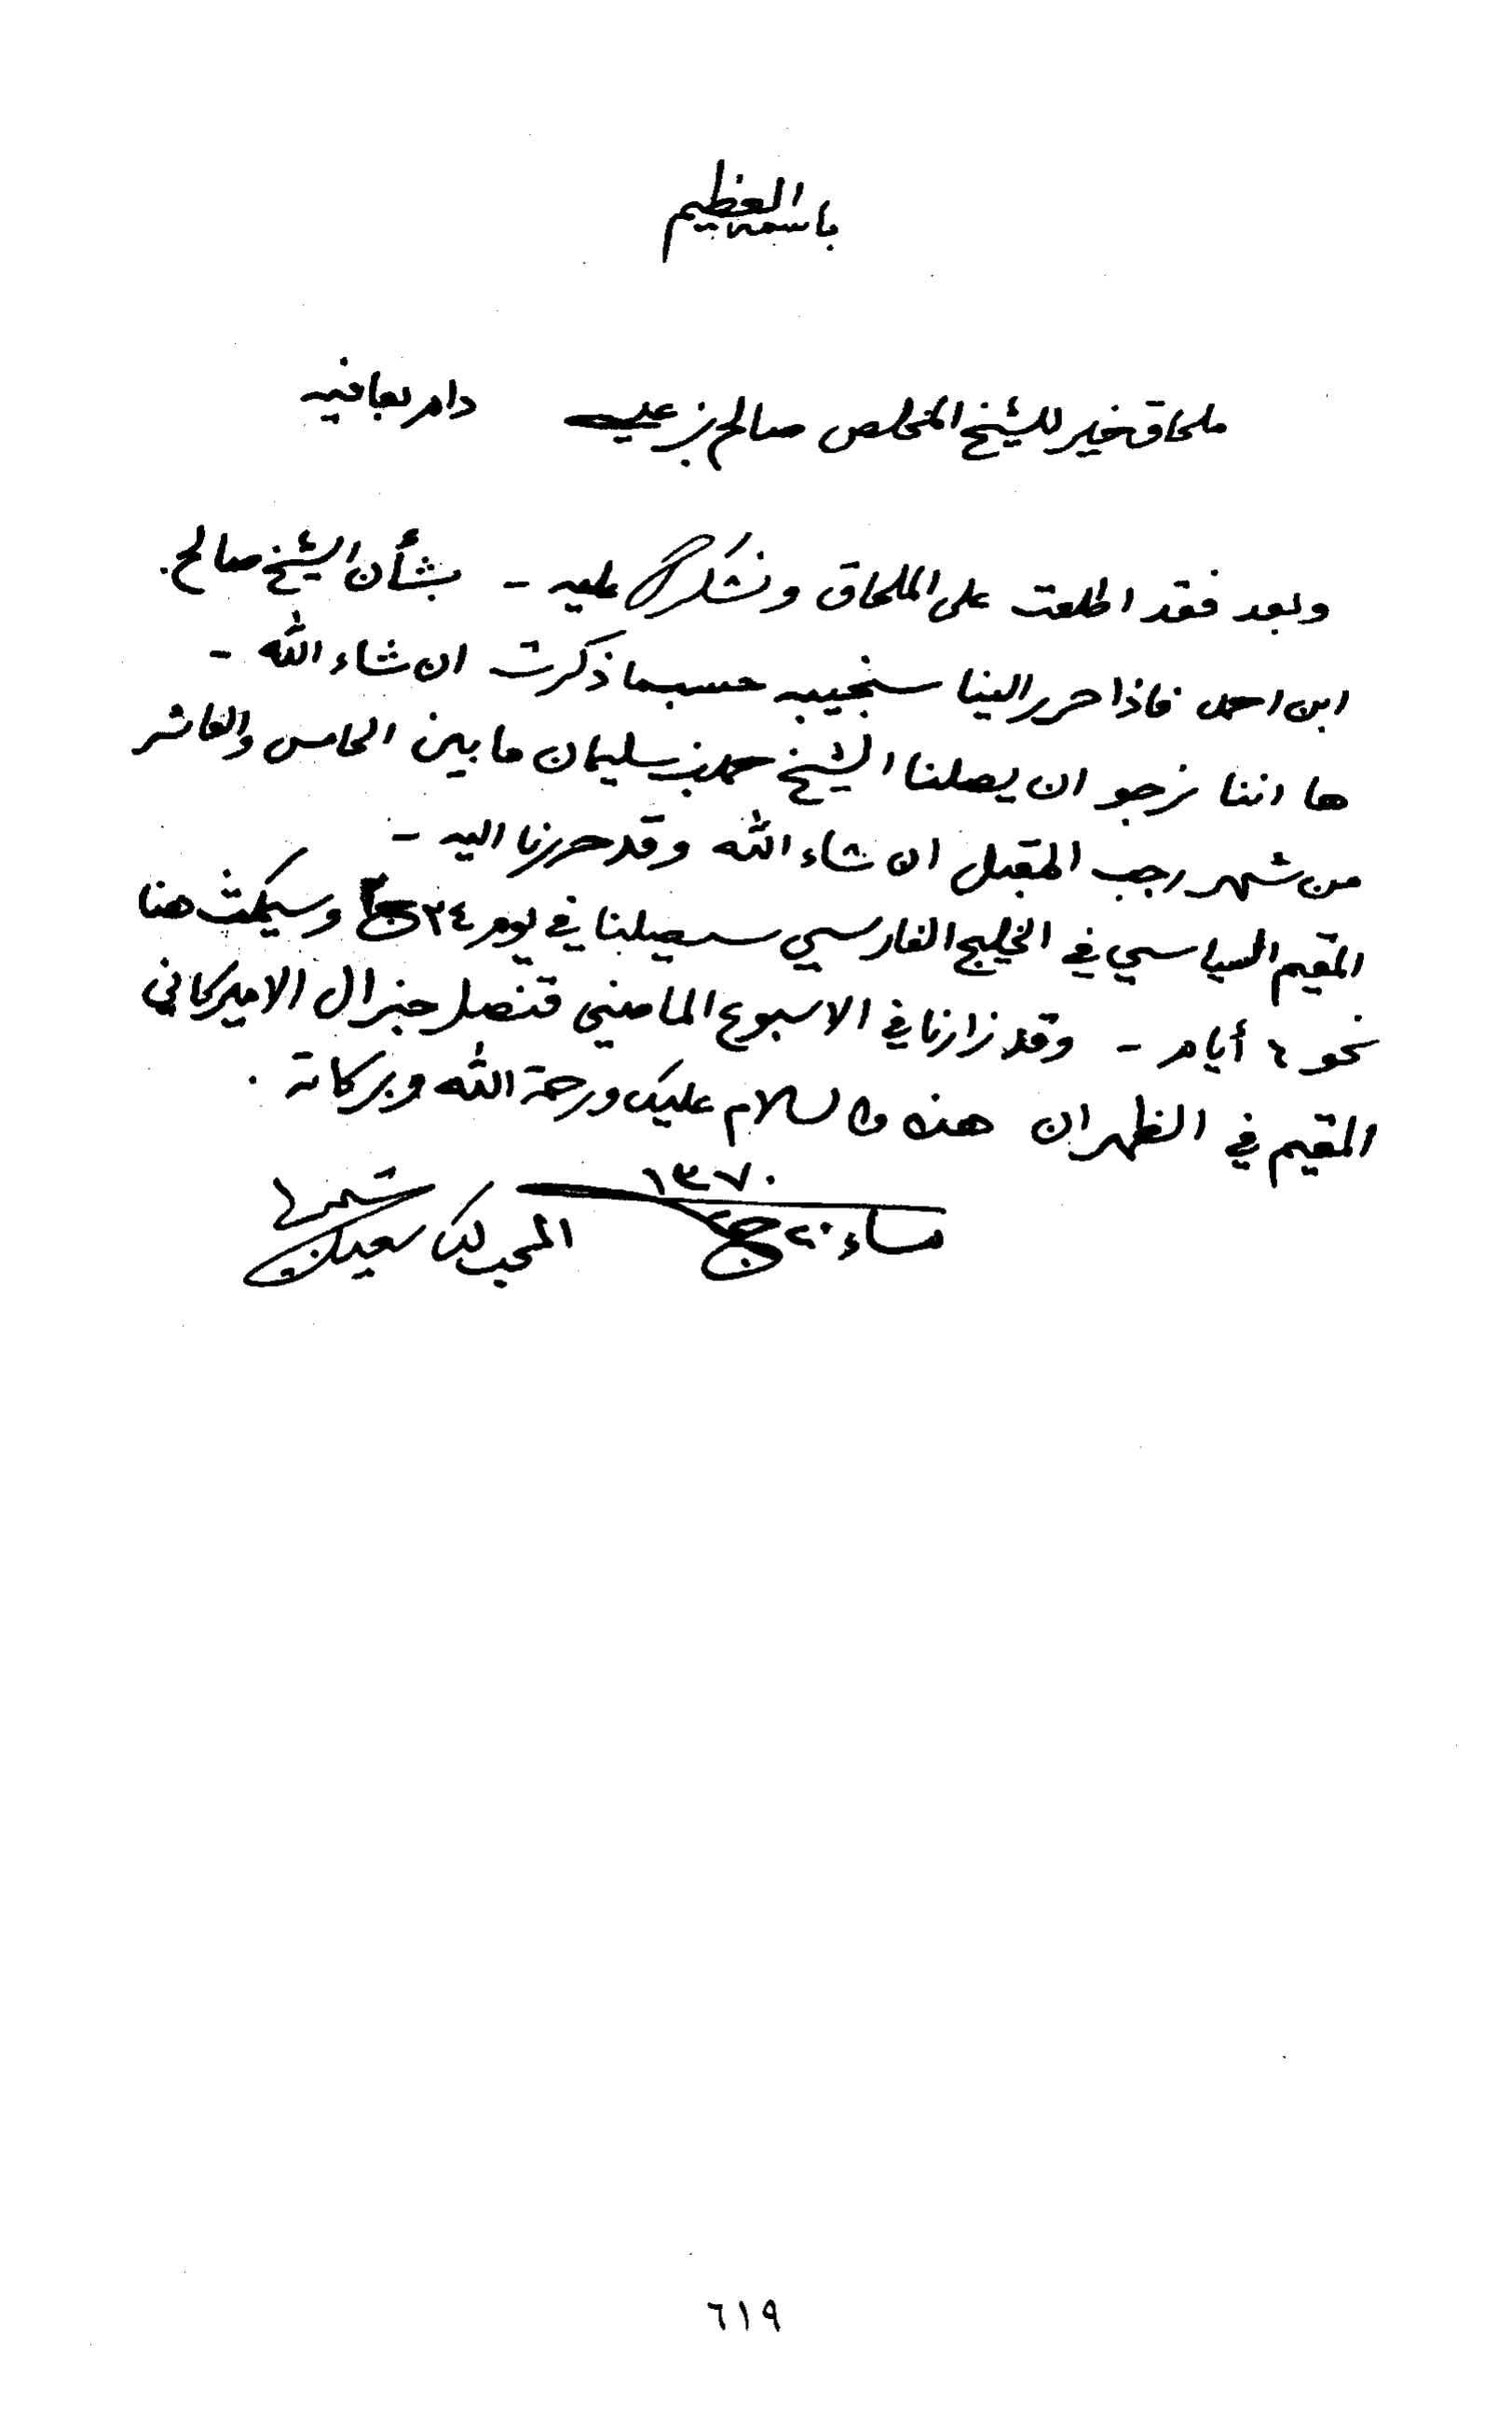 باسمه العظيم
ملحاق خير للشيخ المخلص صالح بن علي دام بعافيه
وبعد فقد اطلعت على الملحاق ونشكرك عليه - بشأن الشيخ صالح.
ابن احمد فاذا حرر الينا سنجيبه حسبما ذكرت ان شاء الله -
ها اننا نرجو ان يصلنا الشيخ حمد بن سليمان ما بين الخامس والعاشر
من شهر رجب المقبل ان شاء الله وقد حررنا اليه -
المقيم السياسي في الخليج الفارسي سيصلنا في يوم ٢٤ ج٢ وسيمكث هنا
نحو ٤ أيام - وقد زارنا في الاسبوع الماضي قنصل جنرال الاميركاني
المقيم في الظهران هذه والسلام عليك ورحمة الله وبركاته.
١٣٧٠
مساء ٢٠ ج٢ المحب لك سعيد بن تيمور
٦١٩